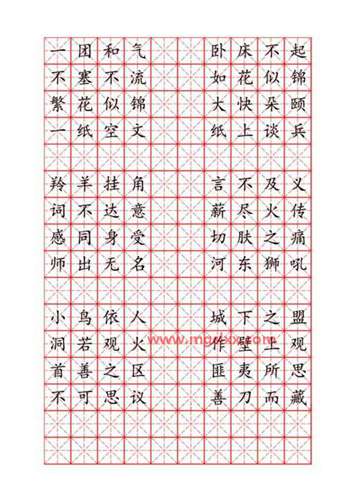 一团和气 卧床不起
不塞不流 如花似锦
繁花似锦 大快朵颐
一纸空文 纸上谈兵
羚羊挂角 言不及义
词不达意 薪尽火传
感同身受 切肤之痛
师出无名 河东狮吼
小鸟依人 城下之盟
洞若观火 作壁上观
首善之区 匪夷所思
不可思议 善刀而藏